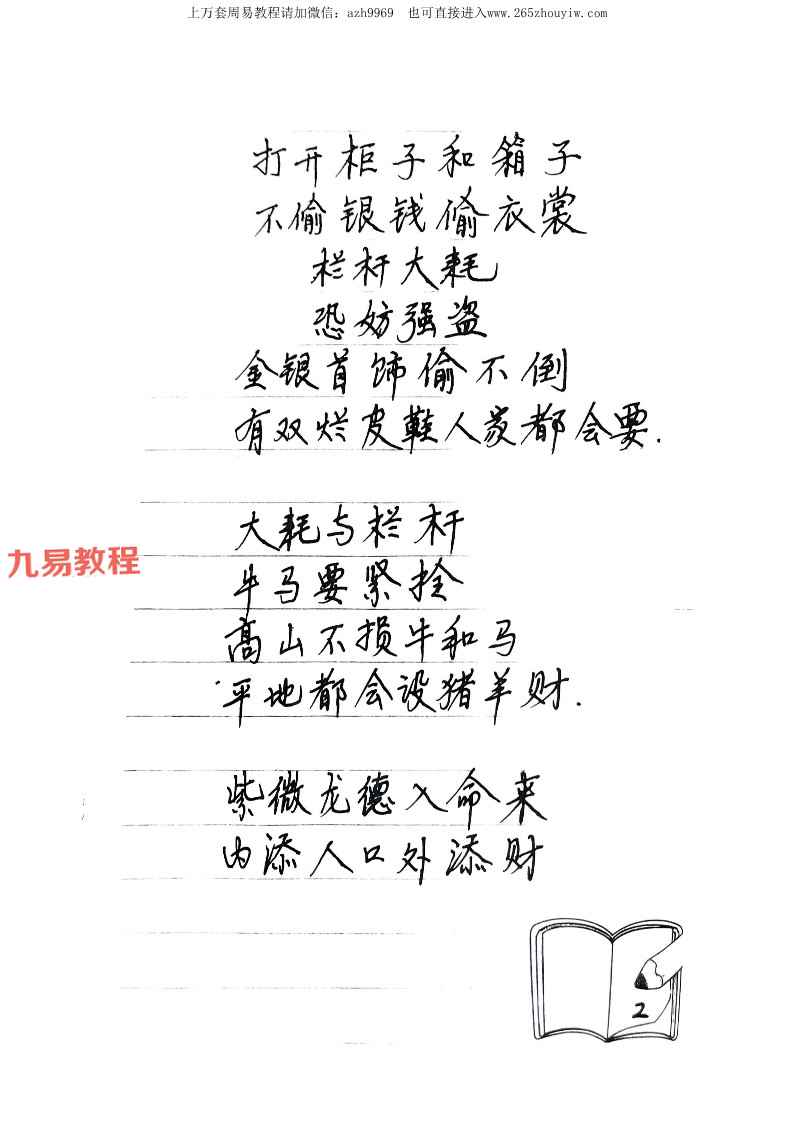 上万套周易教程请加微信：azh9969 也可直接进入www.265zhouyiw.com
打开柜子和箱子
不偷银钱偷衣裳
栏杆大耗
恐妨强盗
金银首饰偷不倒
有双烂皮鞋人家都会要.
大耗与栏杆
牛马要紧拴
九易教程
高山不损牛和马
平地都会设猪羊财.
紫微龙德入命来
内添人口外添财
2